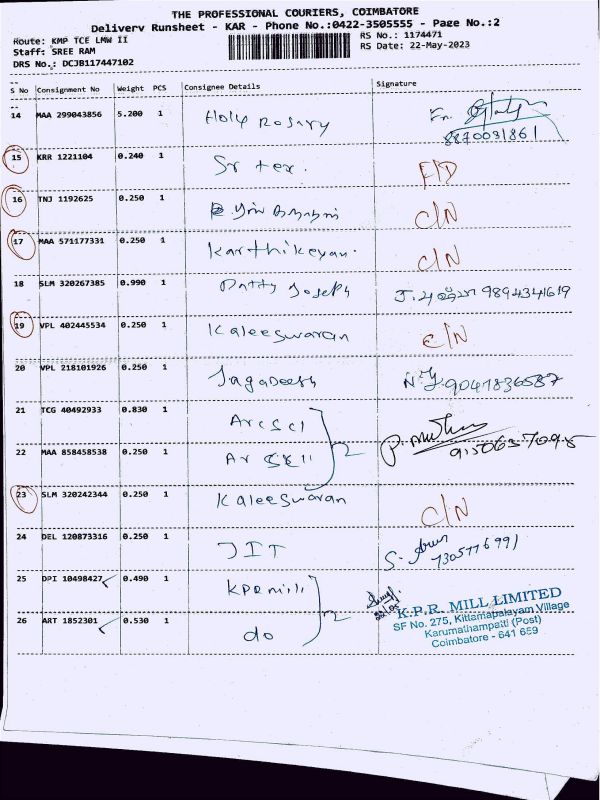 THE PROFESSIONAL COURIERS, COIMBATORE
Delivery Runsheet - KAR - Phone No.:0422-3505555 - Page No.:2
Route: KMP TCE LMW II
RS No.: 1174471
Staff: SREE RAM
RS Date: 22-May-2023
DRS No.: DCJB117447102
S No Consignment No Weight PCS Consignee Details Signature
14 MAA 299043856 5.200 1 Holy Rosary
8870031861
15 KRR 1221104 0.240 1 Sr tex. F/D
16 TNJ 1192625 0.250 1 C/N
17 MAA 571177331 0.250 1 Karthikeyan. C/N
18 SLM 320267385 0.990 1 Joseph 9894341619
19 VPL 402445534 0.250 1 Kaleeswaran C/N
20 VPL 218101926 0.250 1 Jagadeesh 9041836587
21 TCG 40492933 0.830 1
22 MAA 858458538 0.250 1
23 SLM 320242344 0.250 1 Kaleeswaran C/N
24 DEL 120873316 0.250 1 JIT
25 DPI 10498427 0.490 1 KPR mill
26 ART 1852301 0.530 1 do
K.P.R. MILL LIMITED
SF No. 275, Kittampalayam Village
Karumathampatti (Post)
Coimbatore - 641 659